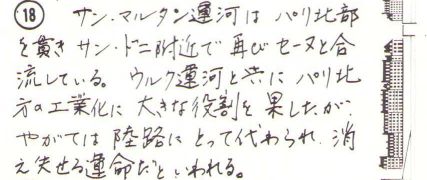 18 サン・マルタン運河は パリ北部
を貫き サン・ドニ附近で 再び セーヌと合
流している。 ウルク運河と共に パリ北
方の工業化に 大きな役割を 果したが、
やがては 陸路に とって代わられ、消
え失せる運命だといわれる。